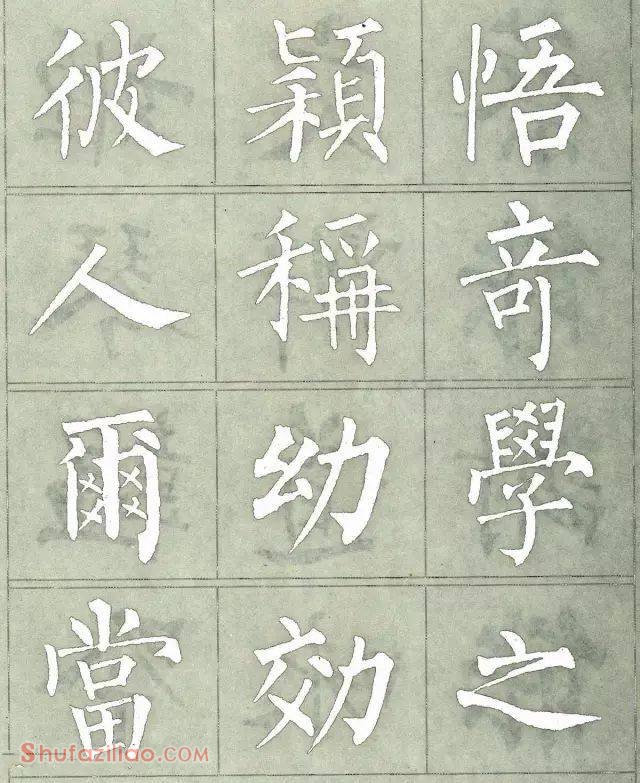 彼穎悟
人稱竒
爾幼學
當効之
Shufaziliao.com